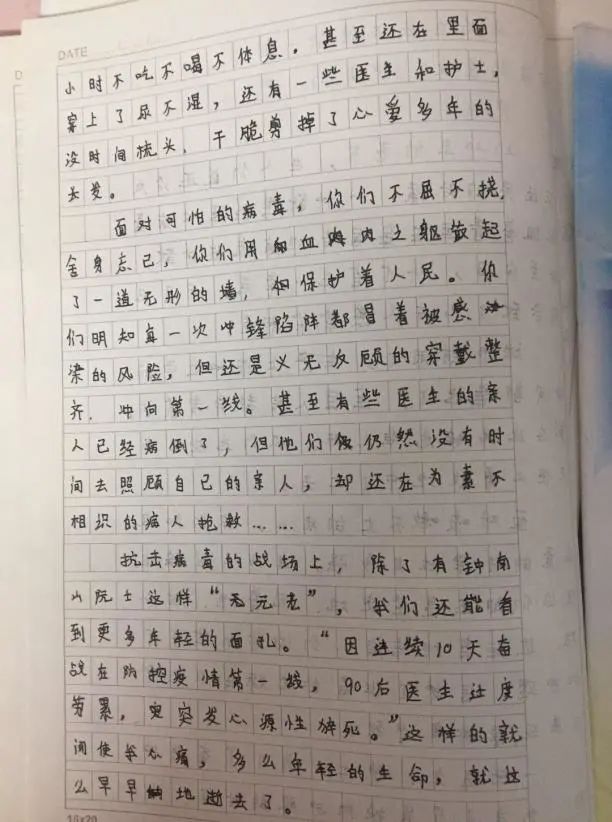 DATE
小时不吃不喝不休息。甚至还在里面
穿上了尿不湿，还有一些医生和护士，
没时间梳头，干脆剪掉了心爱多年的
长发。
面对可怕的病毒，你们不屈不挠，
舍身忘己，你们用血肉之躯做起
了一道无形的墙，保护着人民。你
们明知真一次冲锋陷阵都冒着被感
染的风险，但还是义无反顾的穿戴整
齐，冲向第一线。甚至有些医生的亲
人已经病倒了，但他们仍然没有时
间去照顾自己的亲人，却还在为素不
相识的病人抢救……
抗击病毒的战场上，除了有钟南
山院士这样“无元老”，我们还能看
到更多年轻的面孔。“因连续10天奋
战在防控疫情第一线，90后医生过度
劳累，突发心源性猝死。”这样的新
闻使我心痛，多么年轻的生命，就这
么早早地逝去了。